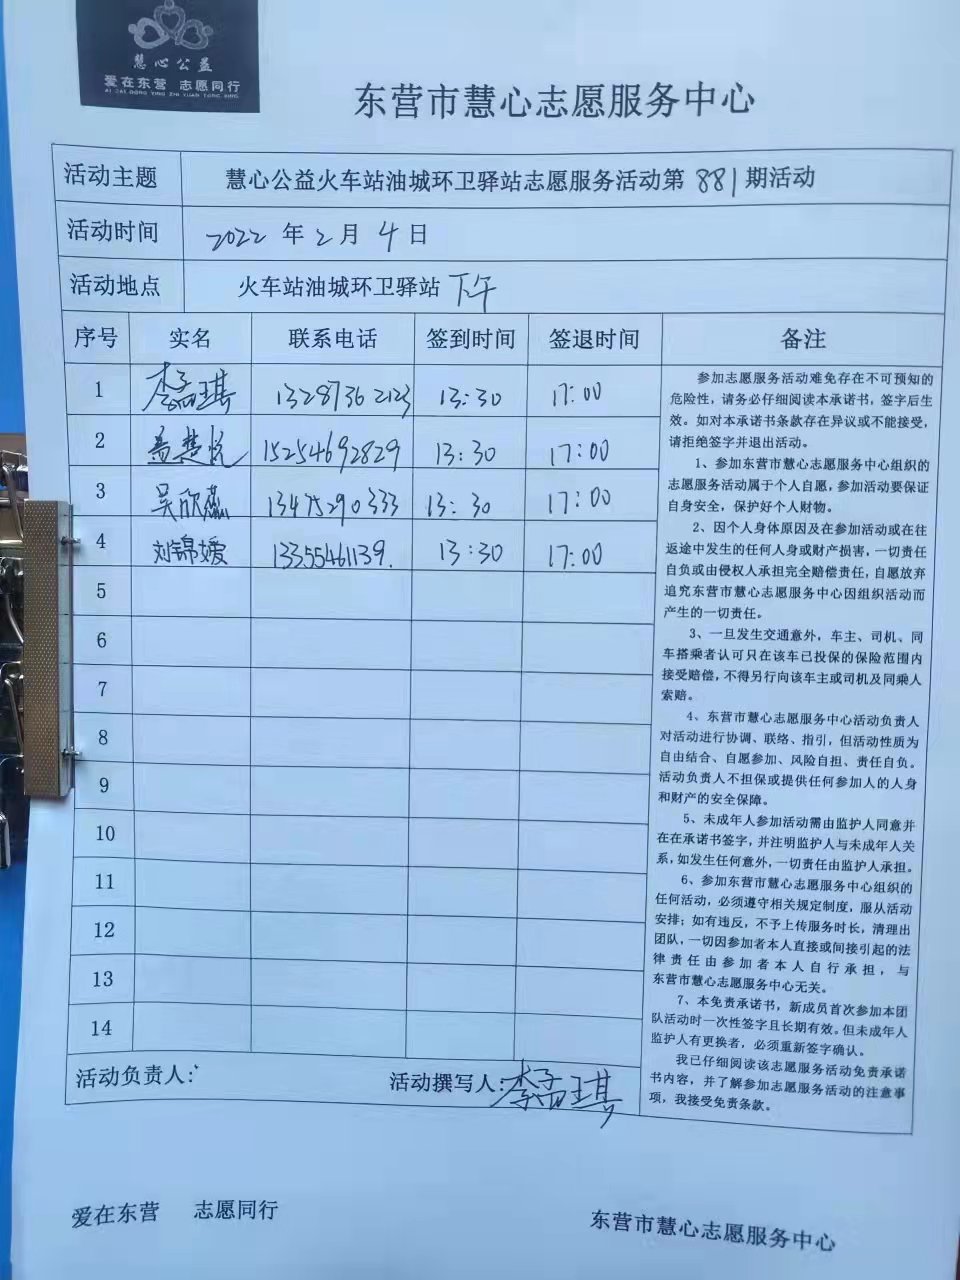 慧心公益
爱在东营 志愿同行
AI ZAI DONG YING ZHI YUAN TONG XING
东营市慧心志愿服务中心
活动主题 慧心公益火车站油城环卫驿站志愿服务活动第881期活动
活动时间 2022年2月4日
活动地点 火车站油城环卫驿站 下午
序号 实名 联系电话 签到时间 签退时间 备注
1 李孟琪 13287362123 13:30 17:00
2 孟慧悦 15254692829 13:30 17:00
3 吴欣蕊 13475290333 13:30 17:00
4 刘锦媛 13355461139. 13:30 17:00
5
6
7
8
9
10
11
12
13
14
参加志愿服务活动难免存在不可预知的
危险性，请务必仔细阅读本承诺书，签字后生
效。如对本承诺书条款存在异议或不能接受，
请拒绝签字并退出活动。
1、参加东营市慧心志愿服务中心组织的
志愿服务活动属于个人自愿，参加活动要保证
自身安全，保护好个人财物。
2、因个人身体原因及在参加活动或在往
返途中发生的任何人身或财产损害，一切责任
自负或由侵权人承担完全赔偿责任，自愿放弃
追究东营市慧心志愿服务中心因组织活动而
产生的一切责任。
3、一旦发生交通意外，车主、司机、同
车搭乘者认可只在该车已投保的保险范围内
接受赔偿，不得另行向该车主或司机及同乘人
索赔。
4、东营市慧心志愿服务中心活动负责人
对活动进行协调、联络、指引，但活动性质为
自由结合、自愿参加、风险自担、责任自负。
活动负责人不担保或提供任何参加人的人身
和财产的安全保障。
5、未成年人参加活动需由监护人同意并
在在承诺书签字，并注明监护人与未成年人关
系，如发生任何意外，一切责任由监护人承担。
6、参加东营市慧心志愿服务中心组织的
任何活动，必须遵守相关规定制度，服从活动
安排；如有违反，不予上传服务时长，清理出
团队，一切因参加者本人直接或间接引起的法
律责任由参加者本人自行承担，与
东营市慧心志愿服务中心无关。
7、本免责承诺书，新成员首次参加本团
队活动时一次性签字且长期有效。但未成年人
监护人有更换者，必须重新签字确认。
我已仔细阅读该志愿服务活动免责承诺
书内容，并了解参加志愿服务活动的注意事
项，我接受免责条款。
活动负责人： 活动撰写人：李孟琪
爱在东营 志愿同行
东营市慧心志愿服务中心